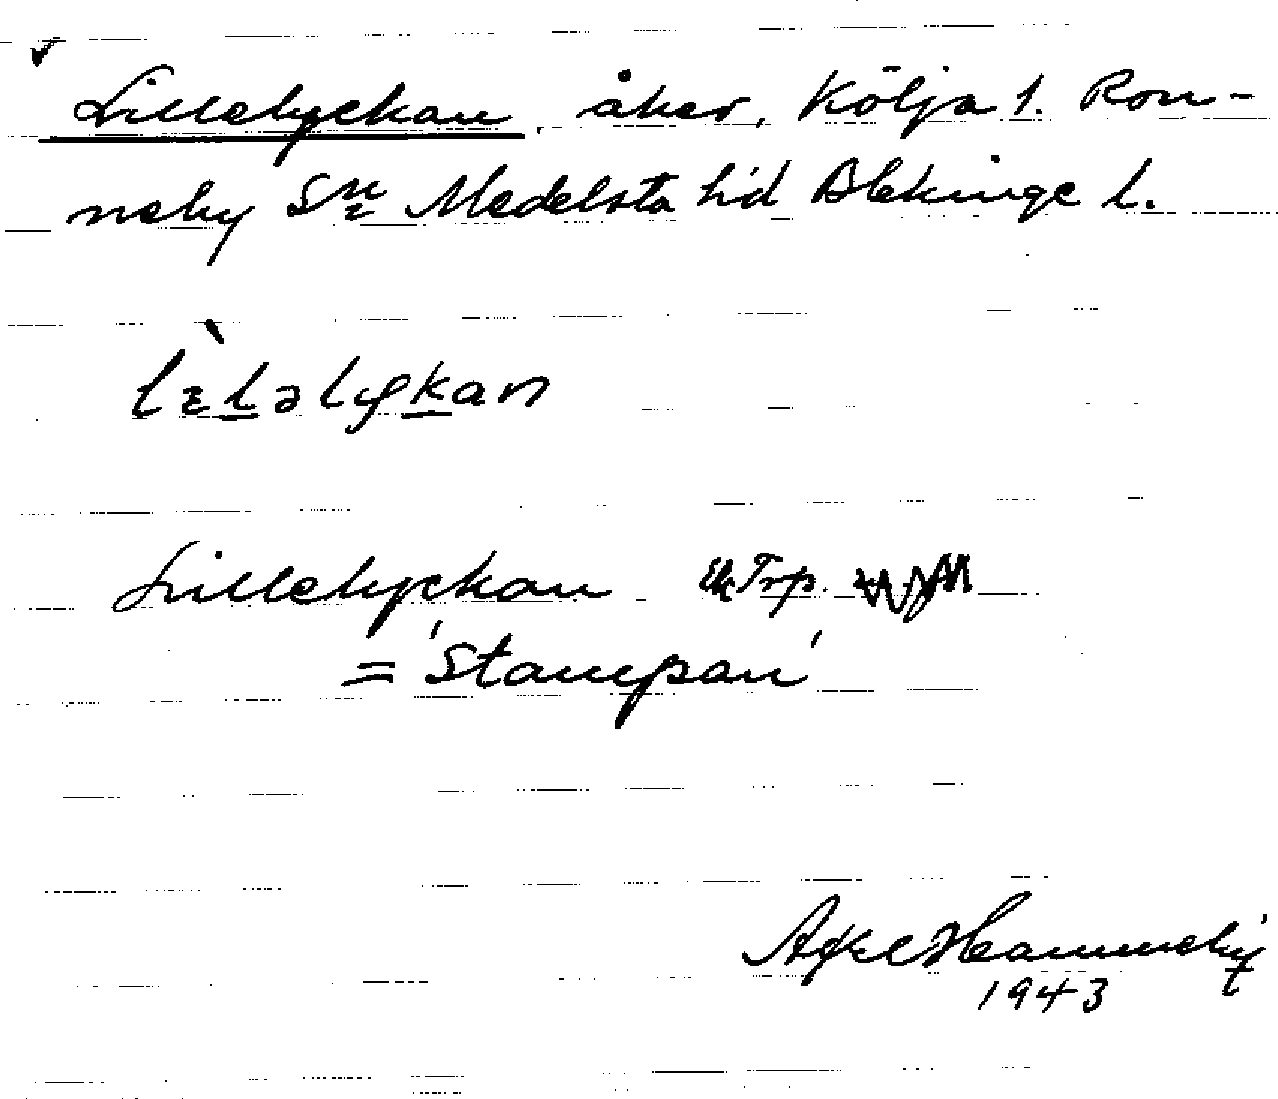 Lillelyckan, åker, Kölja 1. Ron-
neby Sn Medelsta h'd Blekinge l.
lı̀ləlykan
Lillelyckan Trp.
= 'Stampan'
Axel
1943